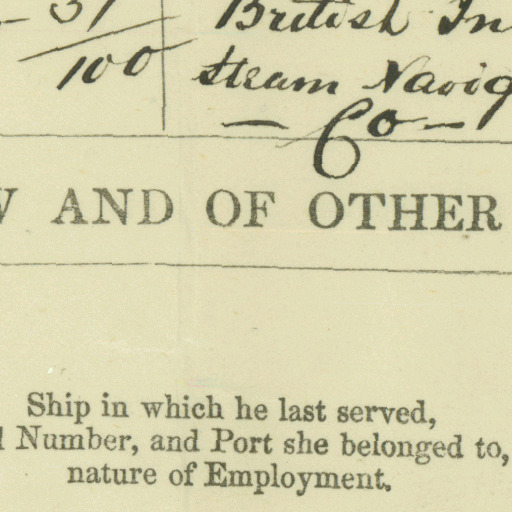 British In
100 Steam Navig
— Co —
AND OF OTHER
Ship in which he last served,
Number, and Port she belonged to,
nature of Employment.